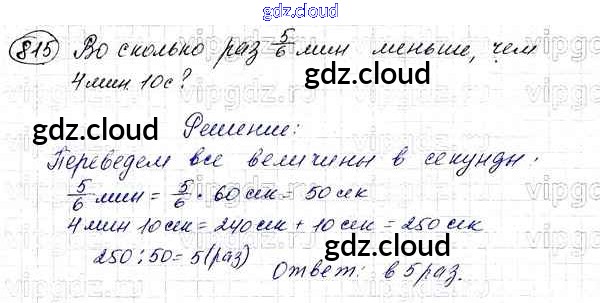 gdz.cloud
815 Во сколько раз 5/6 мин меньше, чем
4 мин 10с?
gdz.cloud
gdz.cloud
Решение:
Переведем все величины в секунды.
5/6 мин = 5/6 · 60 сек = 50 сек
4 мин 10 сек = 240 сек + 10 сек = 250 сек
250 : 50 = 5 (раз)
gdz.cloud
Ответ: в 5 раз.
gdz.cloud